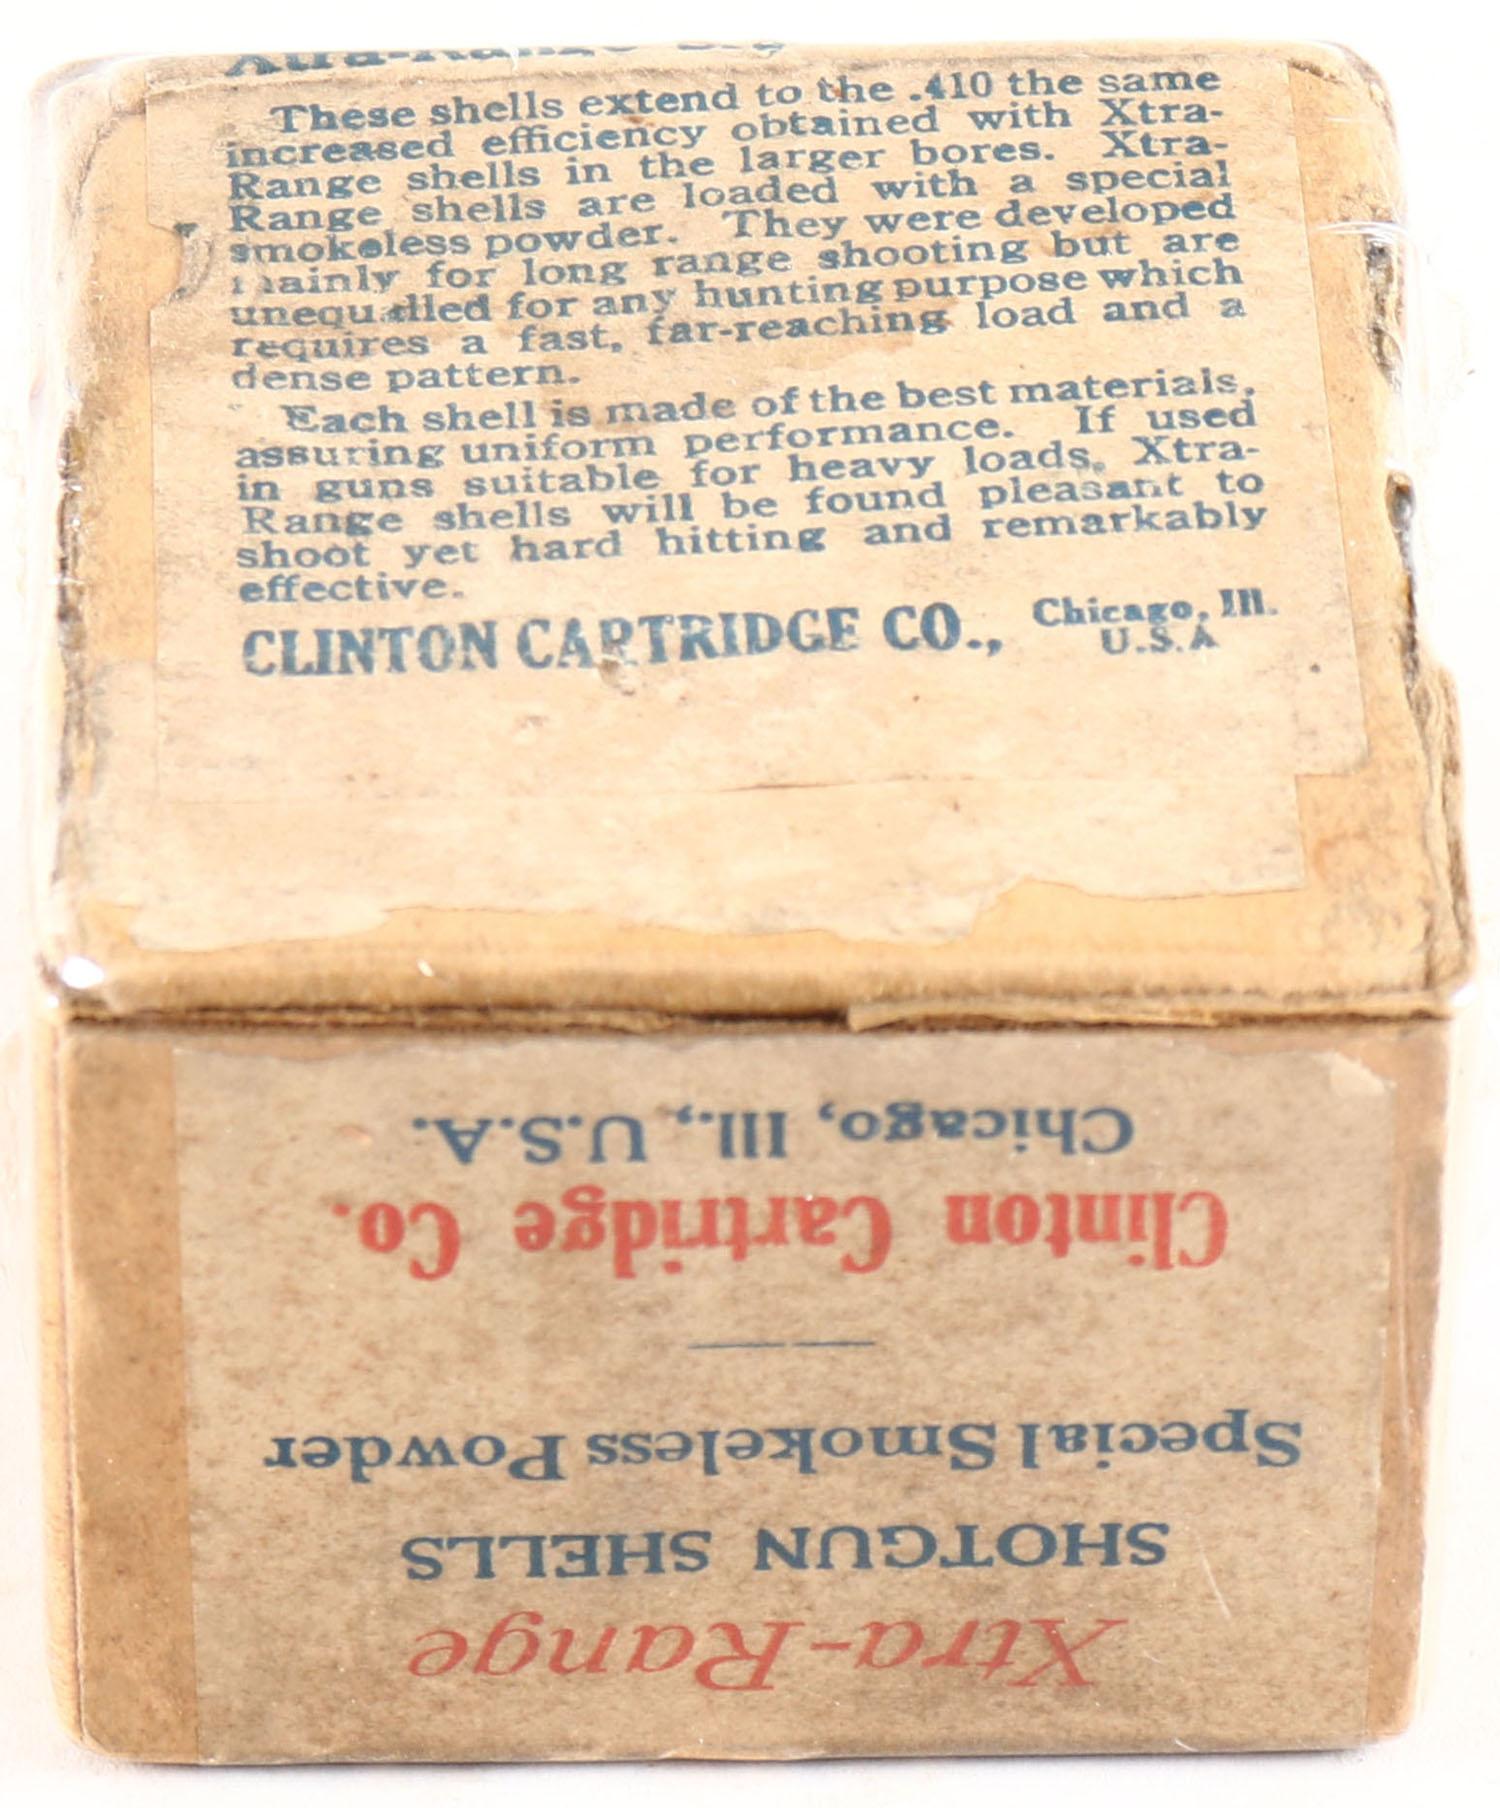 Xtra-Range
These shells extend to the .410 the same
increased efficiency obtained with Xtra-
Range shells in the larger bores. Xtra-
Range shells are loaded with a special
smokeless powder. They were developed
mainly for long range shooting but are
unequalled for any hunting purpose which
requires a fast, far-reaching load and a
dense pattern.
Each shell is made of the best materials,
assuring uniform performance. If used
in guns suitable for heavy loads, Xtra-
Range shells will be found pleasant to
shoot yet hard hitting and remarkably
effective.
CLINTON CARTRIDGE CO., Chicago, Ill.
U.S.A
Xtra-Range
SHOTGUN SHELLS
Special Smokeless Powder
Clinton Cartridge Co.
Chicago, Ill., U.S.A.